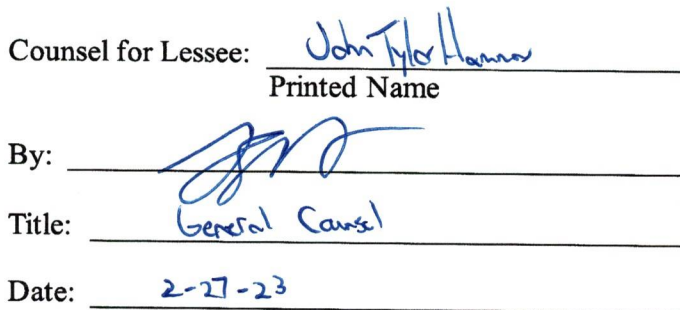 Counsel for Lessee: John Tyler Hammer
Printed Name
By:
Title: General Counsel
Date: 2-27-23